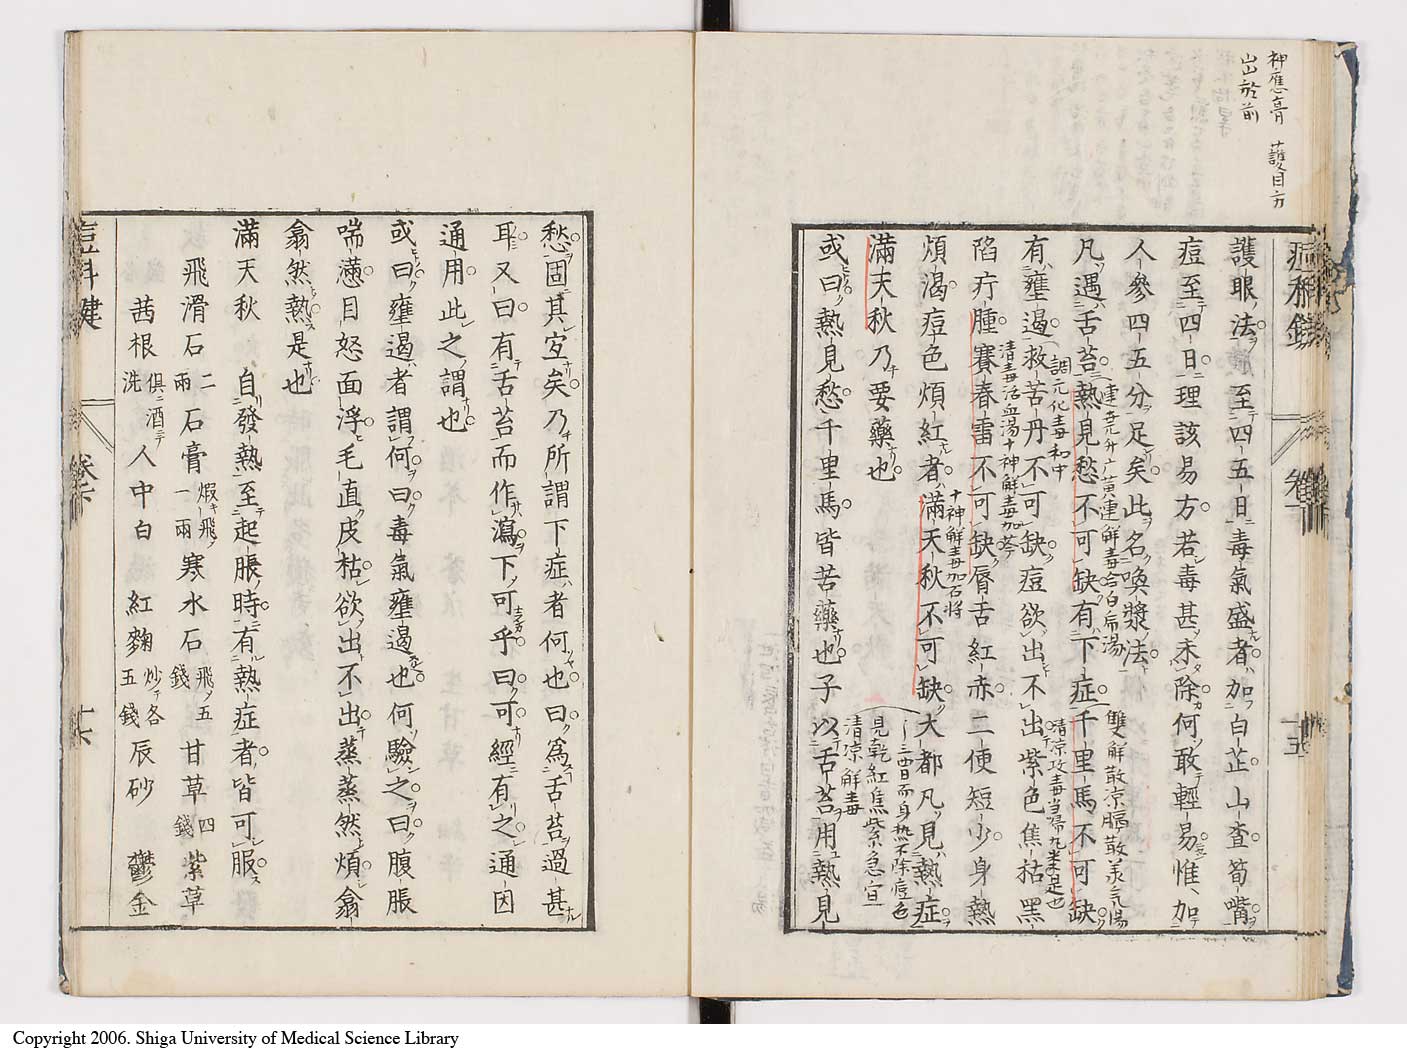 神應膏 護目方
出於前
護眼法至四五日毒氣盛者加白芷山査筍嘴
痘至四日理該易方若毒甚未除何敢輕易惟加
人參四五分足矣此名喚漿法
連壳升广黃連解毒合白扁湯
雙解散凉膈散羌氣湯
凡遇舌苔熱見愁不可缺有下症千里馬不可缺
調元化毒和中
清凉攻毒當帰丸米是也
有壅遏救苦丹不可缺痘欲出不出紫色焦枯黑
清毒活血湯十神解毒加芩
陷疔腫賽春雷不可缺唇舌紅赤二便短少身熱
十神解毒加石将
煩渴痘色煩紅者滿天秋不可缺大都凡見熱症
一三四日而身热不除痘色
見乾紅焦紫急宜
清凉解毒
滿天秋乃要藥也
或曰熱見愁千里馬皆苦藥也子以舌苔用熱見
愁固其宜矣乃所謂下症者何也曰爲舌苔過甚
耳又曰有舌苔而作瀉下可乎曰可經有之通因
通用此之謂也
或曰壅遏者謂何曰毒氣壅遏也何驗之曰腹脹
喘懣目怒面浮毛直皮枯欲出不出蒸蒸然煩翕
翕然熱是也
滿天秋 自發熱至起脹時有熱症者皆可服
飛滑石二兩 石膏煆飛一兩 寒水石飛五錢 甘草四錢 紫草
茜根俱酒洗 人中白 紅麴炒各五錢 辰砂 鬱金
痘科鍵 卷下 十六